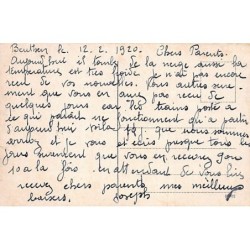 Beuthen le 12. 2. 1920. Chers Parents.
Aujourd'hui il tombe de la neige aussi la
température est très froide je n'ai pas encore
recu de vos nouvelles. Vous autres seure-
ment que vous en aurez pas recu de
quelques jours car les trains poste a
ce qui parait ne fonctionnent qu'a partir
d'aujourd'hui voila que nous sommes
arrivés et je vous et ecris presque tous les
jours surement que vous en recevrez 9 ou
10 a la fois. en attendant de vous lire
recevez chers parents mes meilleurs
baisers. Joseph